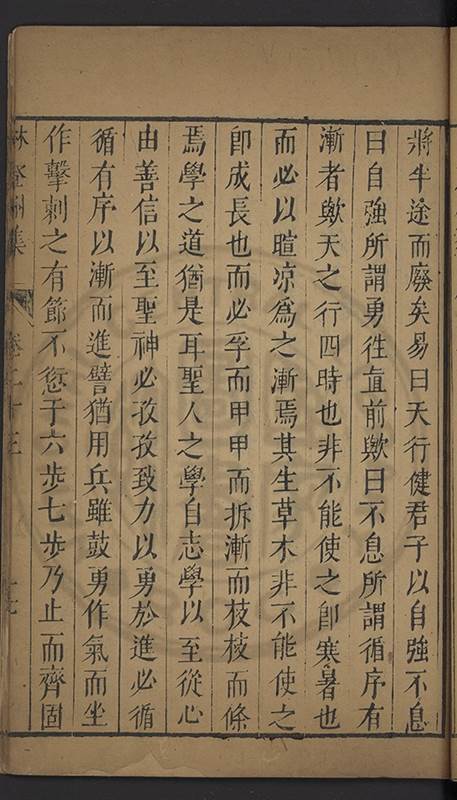 將半途而廢矣易曰天行健君子以自強不息
曰自強所謂勇徃直前歟曰不息所謂循序有
漸者歟天之行四時也非不能使之卽寒暑也
而必以暄凉爲之漸焉其生草木非不能使之
卽成長也而必孚而甲甲而拆漸而枝枝而條
焉學之道猶是耳聖人之學自志學以至從心
由善信以至聖神必孜孜致力以勇於進必循
循有序以漸而進譬猶用兵雖鼓勇作氣而坐
作擊刺之有節不愆于六步七步乃止而齊固
集 卷二十三